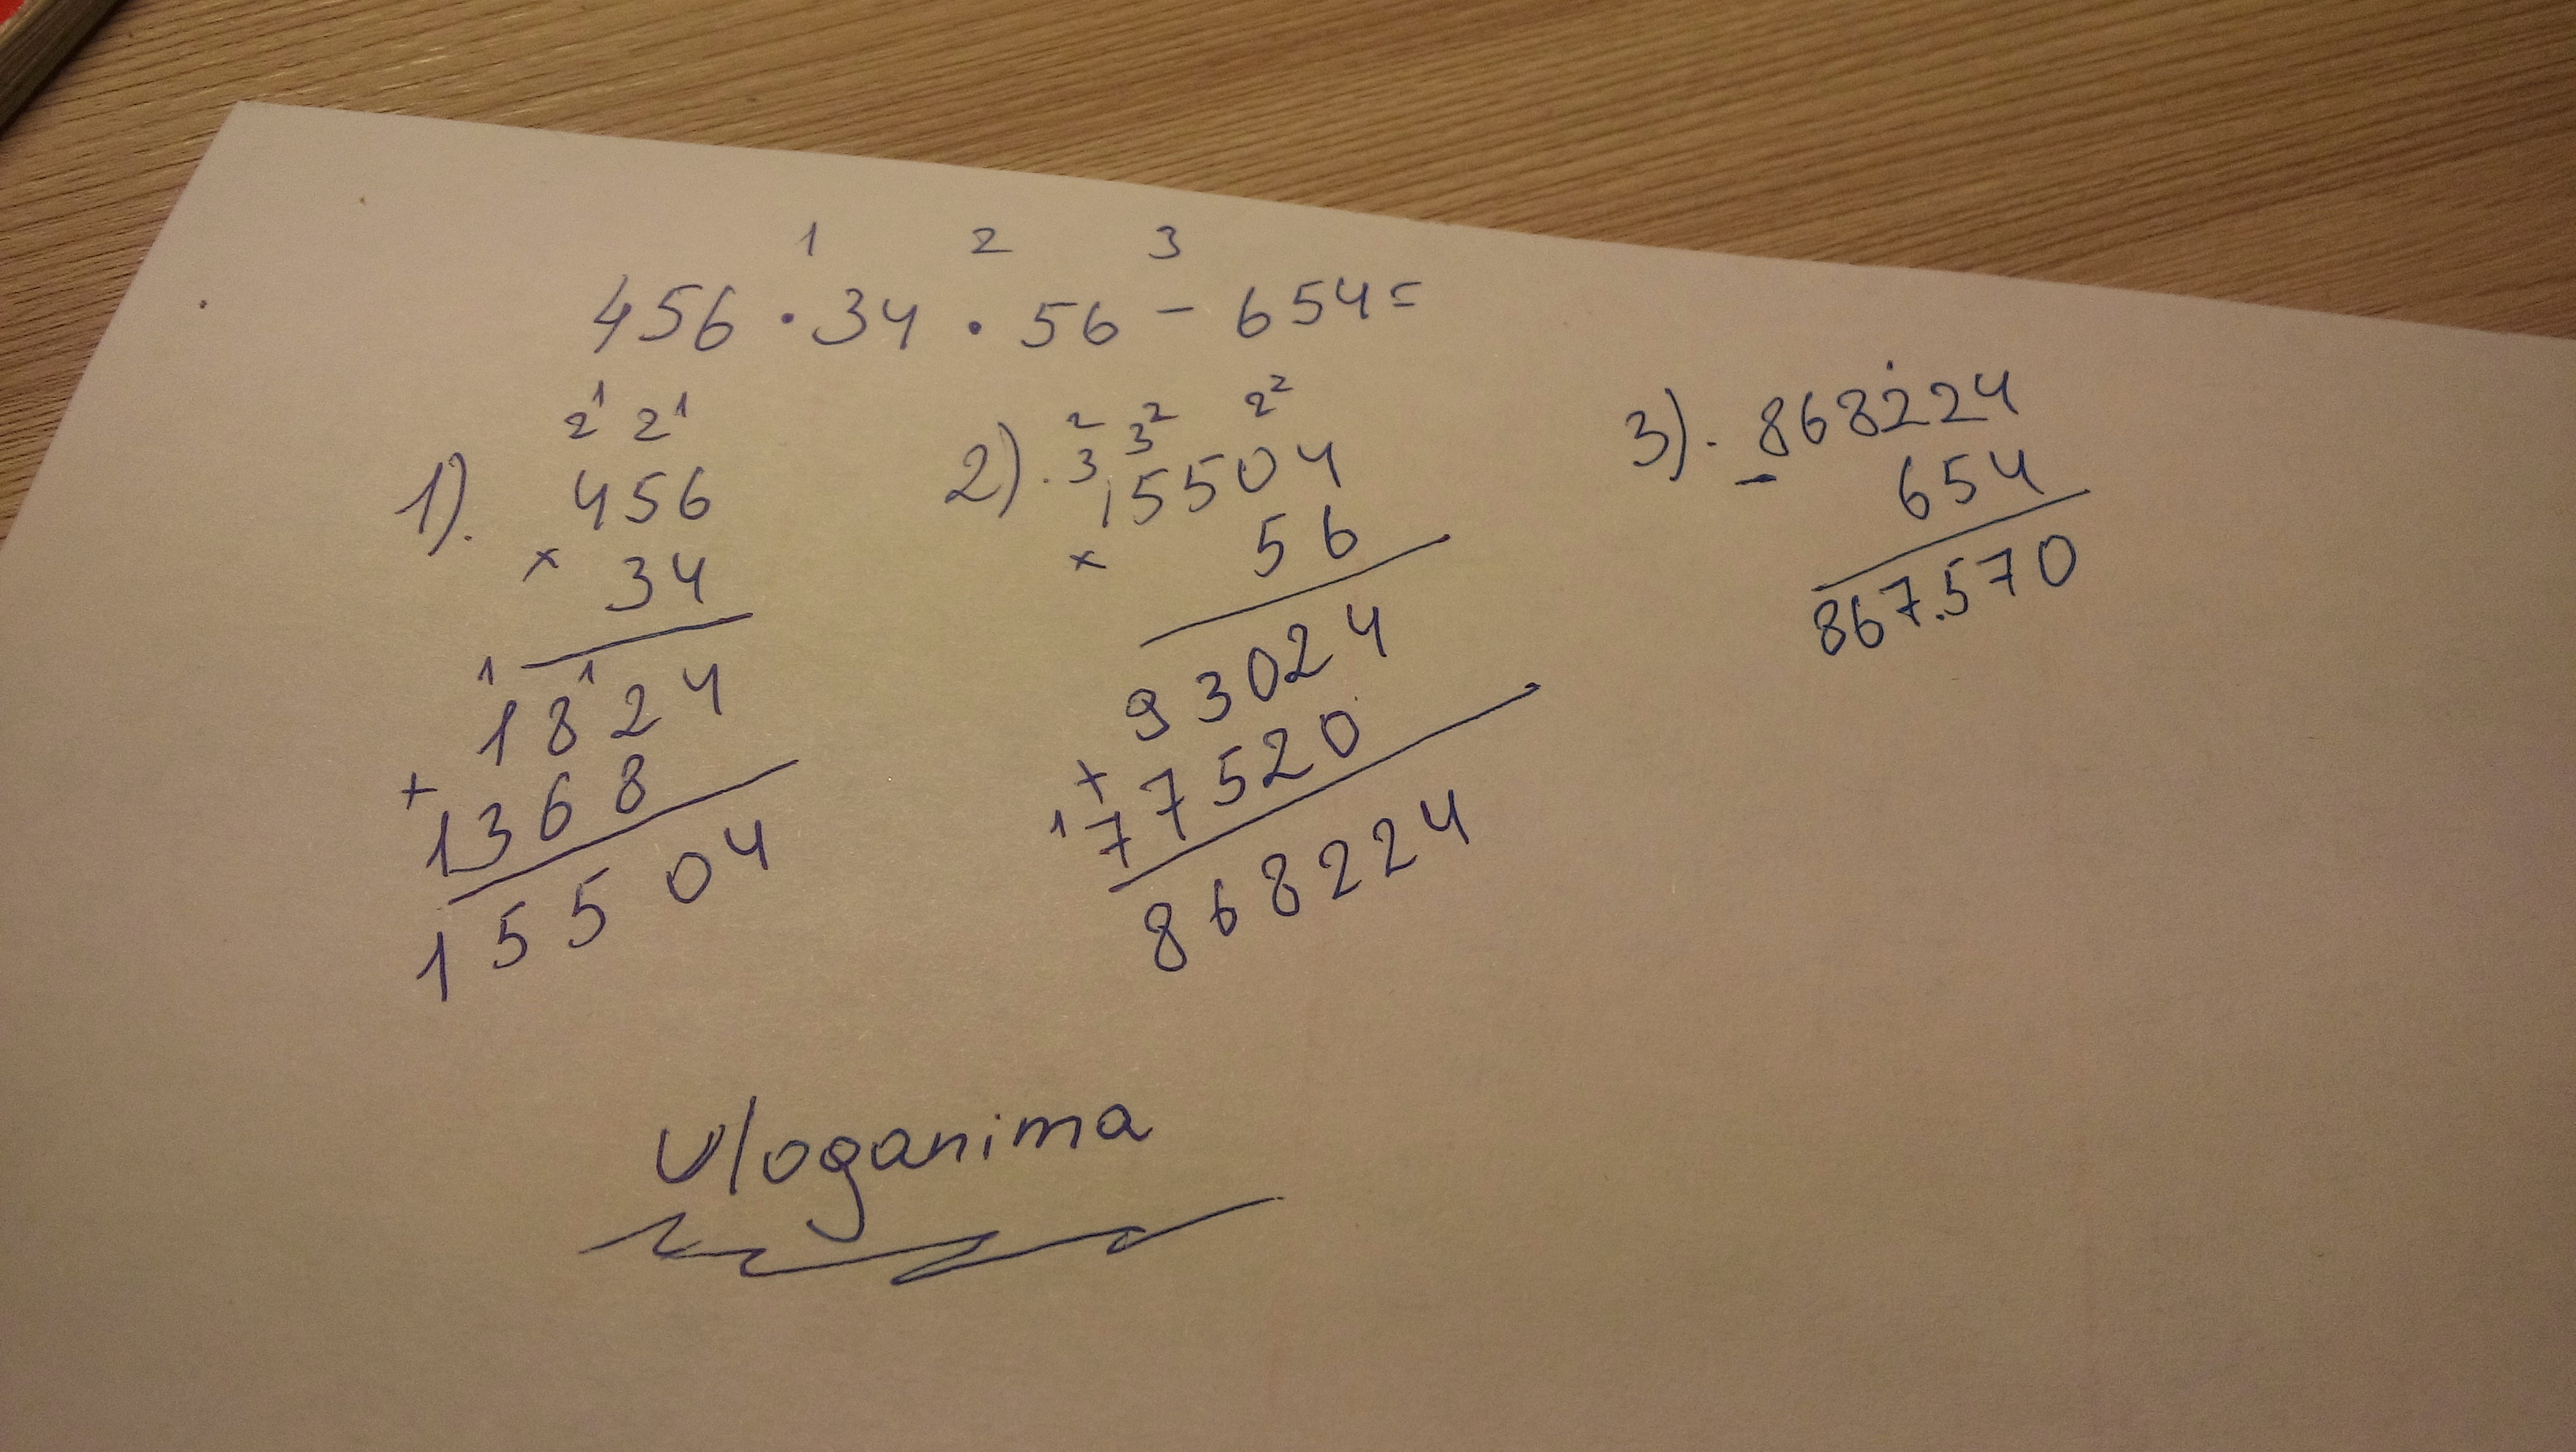 1 2 3
456 · 34 · 56 - 654 =
1).
2¹ 2¹
456
x 34
1 1
1824
+
1368
15504
2).
2
3 3² 2²
15504
x 56
93024
+
1
77520
868224
3).
- 868224
654
867.570
Uloganima